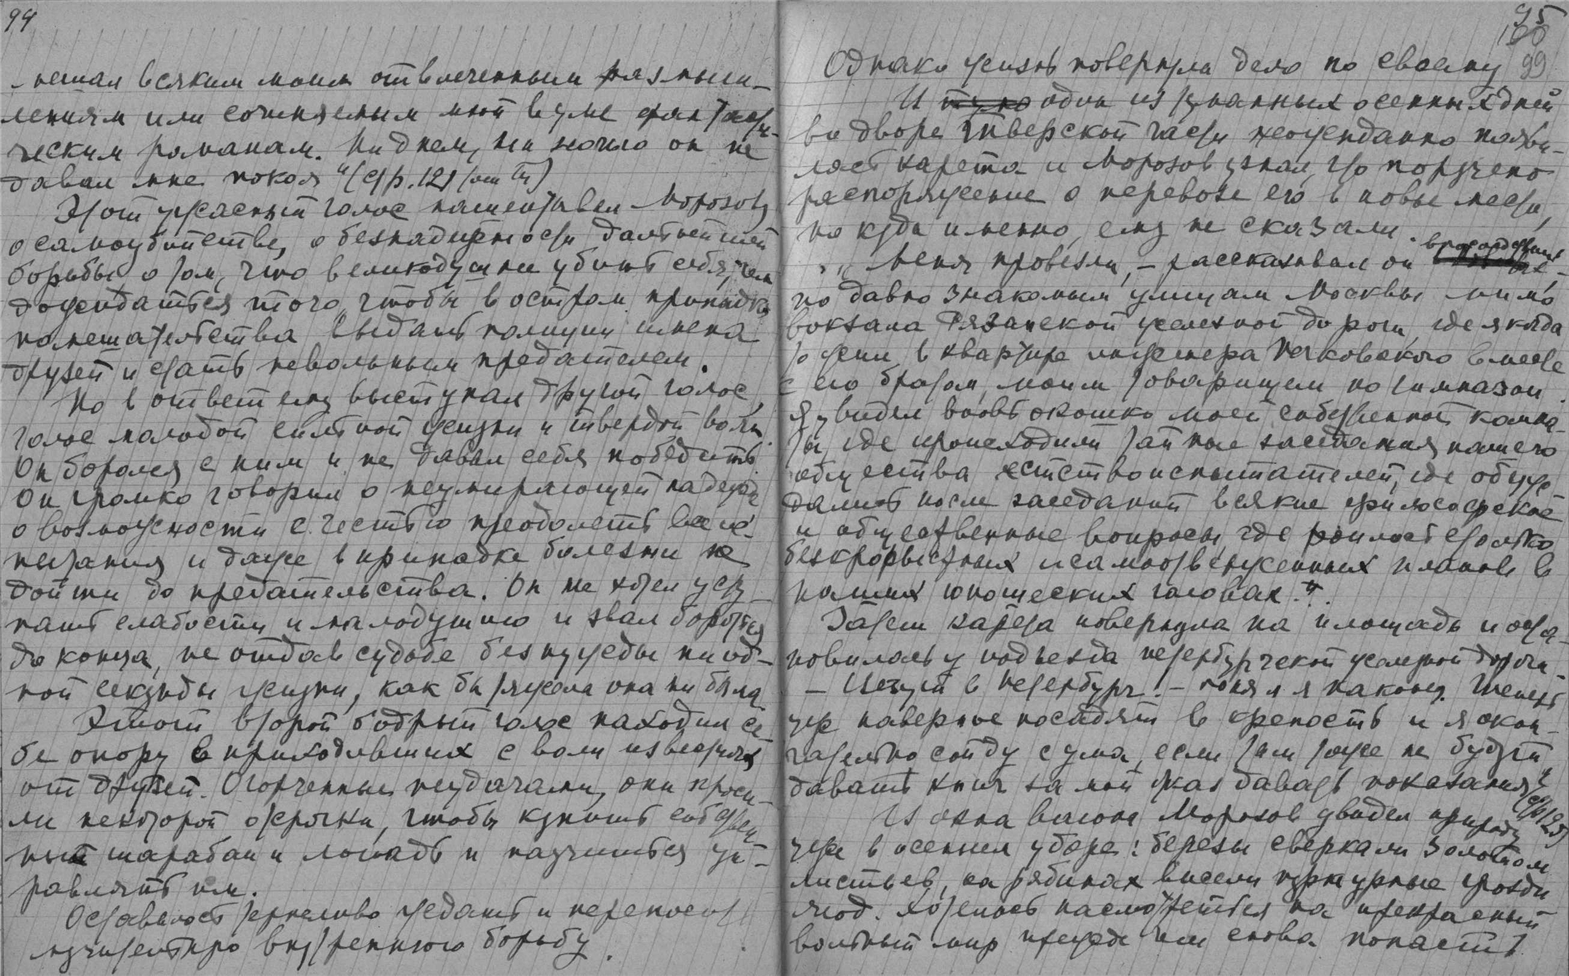 94
мешал всяким моим отвлеченным размыш-
лениям или сочиняемым мной в уме фантасти-
ческим романам. Ни днем, ни ночью он не
давал мне покоя" (стр. 121
Этот ужасный голос нашептывал Морозову
о самоубийстве, о безнадежности дальнейшей
борьбы, о том, что великодушнее убить себя, чем
дожидаться того, чтобы в остром припадке
помешательства выдать полиции имена
друзей и стать невольным предателем.
Но в ответ ему выступал другой голос,
голос молодой сильной жизни и твердой воли.
Он боролся с ним и не давал себя победить.
Он громко говорил о неумирающей надежде
о возможности с честью преодолеть все ис-
пытания и даже в припадке болезни не
дойти до предательства. Он не хотел усту-
пать слабости и малодушию и звал бороться
до конца, не отдав судьбе без нужды ни од-
ной секунды жизни, как бы тяжела она ни была
Этот второй бодрый голос находил се-
бе опору в приходивших с воли известиях
от друзей. Огорченные неудачами, они проси-
ли некоторой отсрочки, чтобы купить собствен-
ный шарабан и лошадь и научиться уп-
равлять им.
Оставалось терпеливо ждать и переносить
мучительную внутреннюю борьбу.
95
99
Однако жизнь повернула дело по своему
И один из туманных осенних дней
во дворе Тверской части неожиданно появи-
лась карета и Морозов узнал, что получено
распоряжение о перевозе его в новое место,
но куда именно, ему не сказали.
"Меня провезли, – рассказывал он впоследствии, –
по давно знакомым улицам Москвы мимо
вокзала Рязанской железной дороги, где я когда
то жил в квартире инженера Печковского вместе
с его братом, моим товарищем по гимназии.
Я увидел вновь окошко моей собственной комна-
ты, где происходили тайные заседания нашего
общества естествоиспытателей, где обсуж-
дались после заседаний всякие философские
и общественные вопросы, где роилось столько
безкорыстных и самоотверженных планов в
наших юношеских головах".
Затем карета повернула на площадь и оста-
новилась у подъезда петербургской железной дороги.
– Итак в Петербург! – понял я наконец. Теперь
уж наверное посадят в крепость и я окон-
чательно сойду с ума, если там тоже не будут
давать книг за мой отказ давать показания"
(стр 125)
Из окна вагона Морозов увидел природу
уже в осеннем уборе: березы сверкали золотом
листьев, на рябинах висели пурпурные грозди
ягод. Хотелось насмотреться на прекрасный
вольный мир прежде чем снова попасть